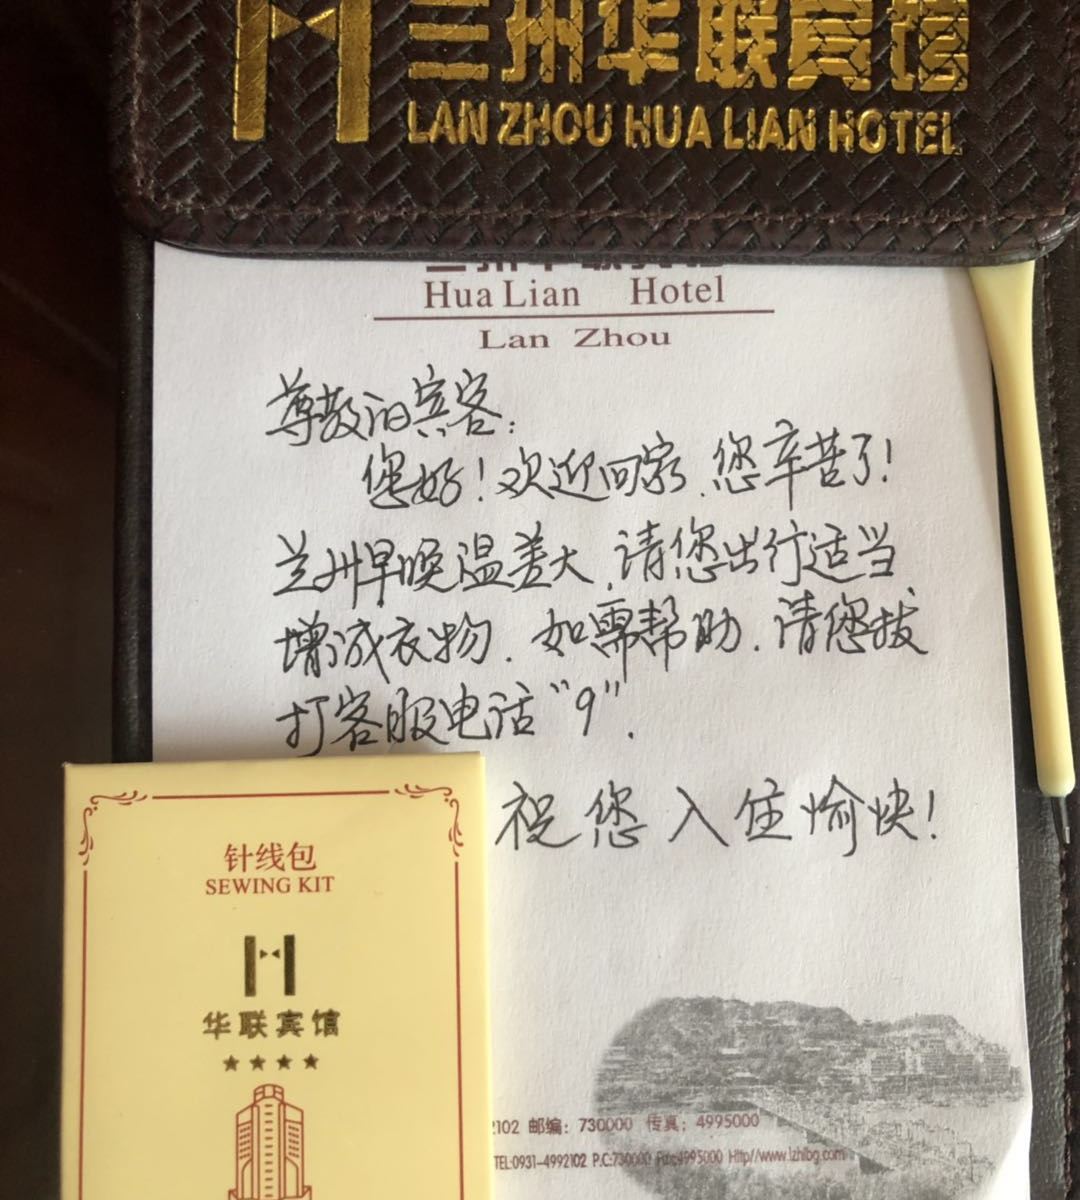 兰州华联宾馆
LAN ZHOU HUA LIAN HOTEL
Hua Lian Hotel
Lan Zhou
尊敬的宾客：
您好！欢迎回家，您辛苦了！
兰州早晚温差大，请您出行适当
增减衣物，如需帮助，请您拔
打客服电话“9”.
祝您入住愉快！
针线包
SEWING KIT
华联宾馆
★★★★
2102 邮编：730000 传真：4995000
TEL:0931-4992102 P.C:730000 Fax:4995000 Http//www.lzhlbg.com